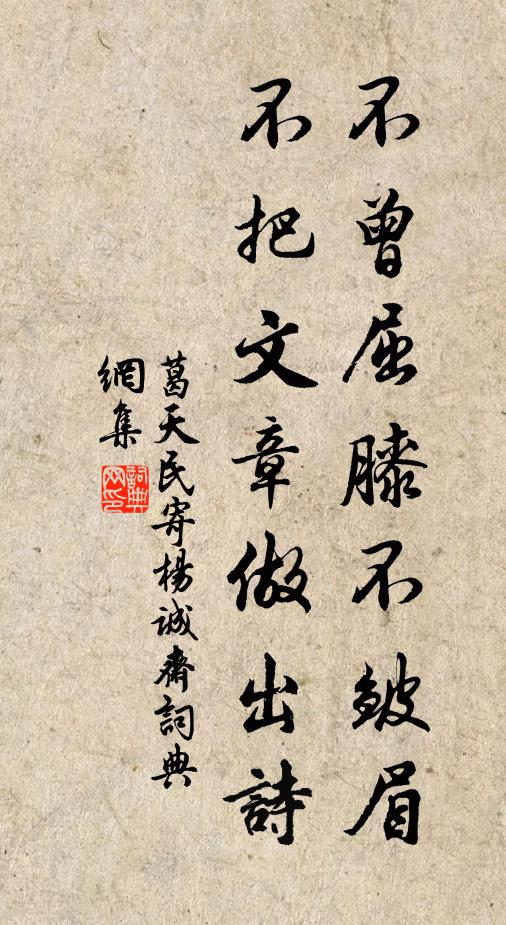 不曾屈膝不皺眉
不把文章做出詩
葛天民寄楊誠齋詞典
網集
詞典
網印